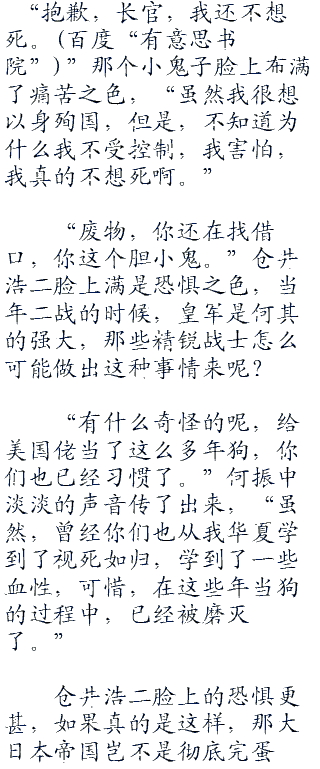 “抱歉，长官，我还不想
死。(百度“有意思书
院”)”那个小鬼子脸上布满
了痛苦之色，“虽然我很想
以身殉国，但是，不知道为
什么我不受控制，我害怕，
我真的不想死啊。”
“废物，你还在找借
口，你这个胆小鬼。”仓井
浩二脸上满是恐惧之色，当
年二战的时候，皇军是何其
的强大，那些精锐战士怎么
可能做出这种事情来呢？
“有什么奇怪的呢，给
美国佬当了这么多年狗，你
们也已经习惯了。”何振中
淡淡的声音传了出来，“虽
然，曾经你们也从我华夏学
到了视死如归，学到了一些
血性，可惜，在这些年当狗
的过程中，已经被磨灭
了。”
仓井浩二脸上的恐惧更
甚，如果真的是这样，那大
日本帝国岂不是彻底完蛋